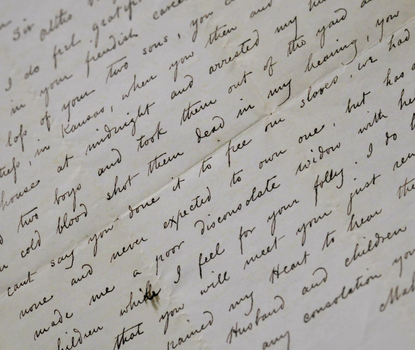 Sir altho
I do feel gratif
in your fiendish care
loss of your two sons, you
tress, in Kansas, when you then and
house at midnight and arrested my hu
d two boys and took them out of the yard a
n cold blood shot them dead in my hearing, you
cant say you done it to free our slaves, we had
none and never expected to own one, but has o
made me a poor disconsolate widow with he
children while I feel for your folly. I do h
that you will meet your just rew
pained my Heart to hear th
Husband and children
any consolation you
Mah